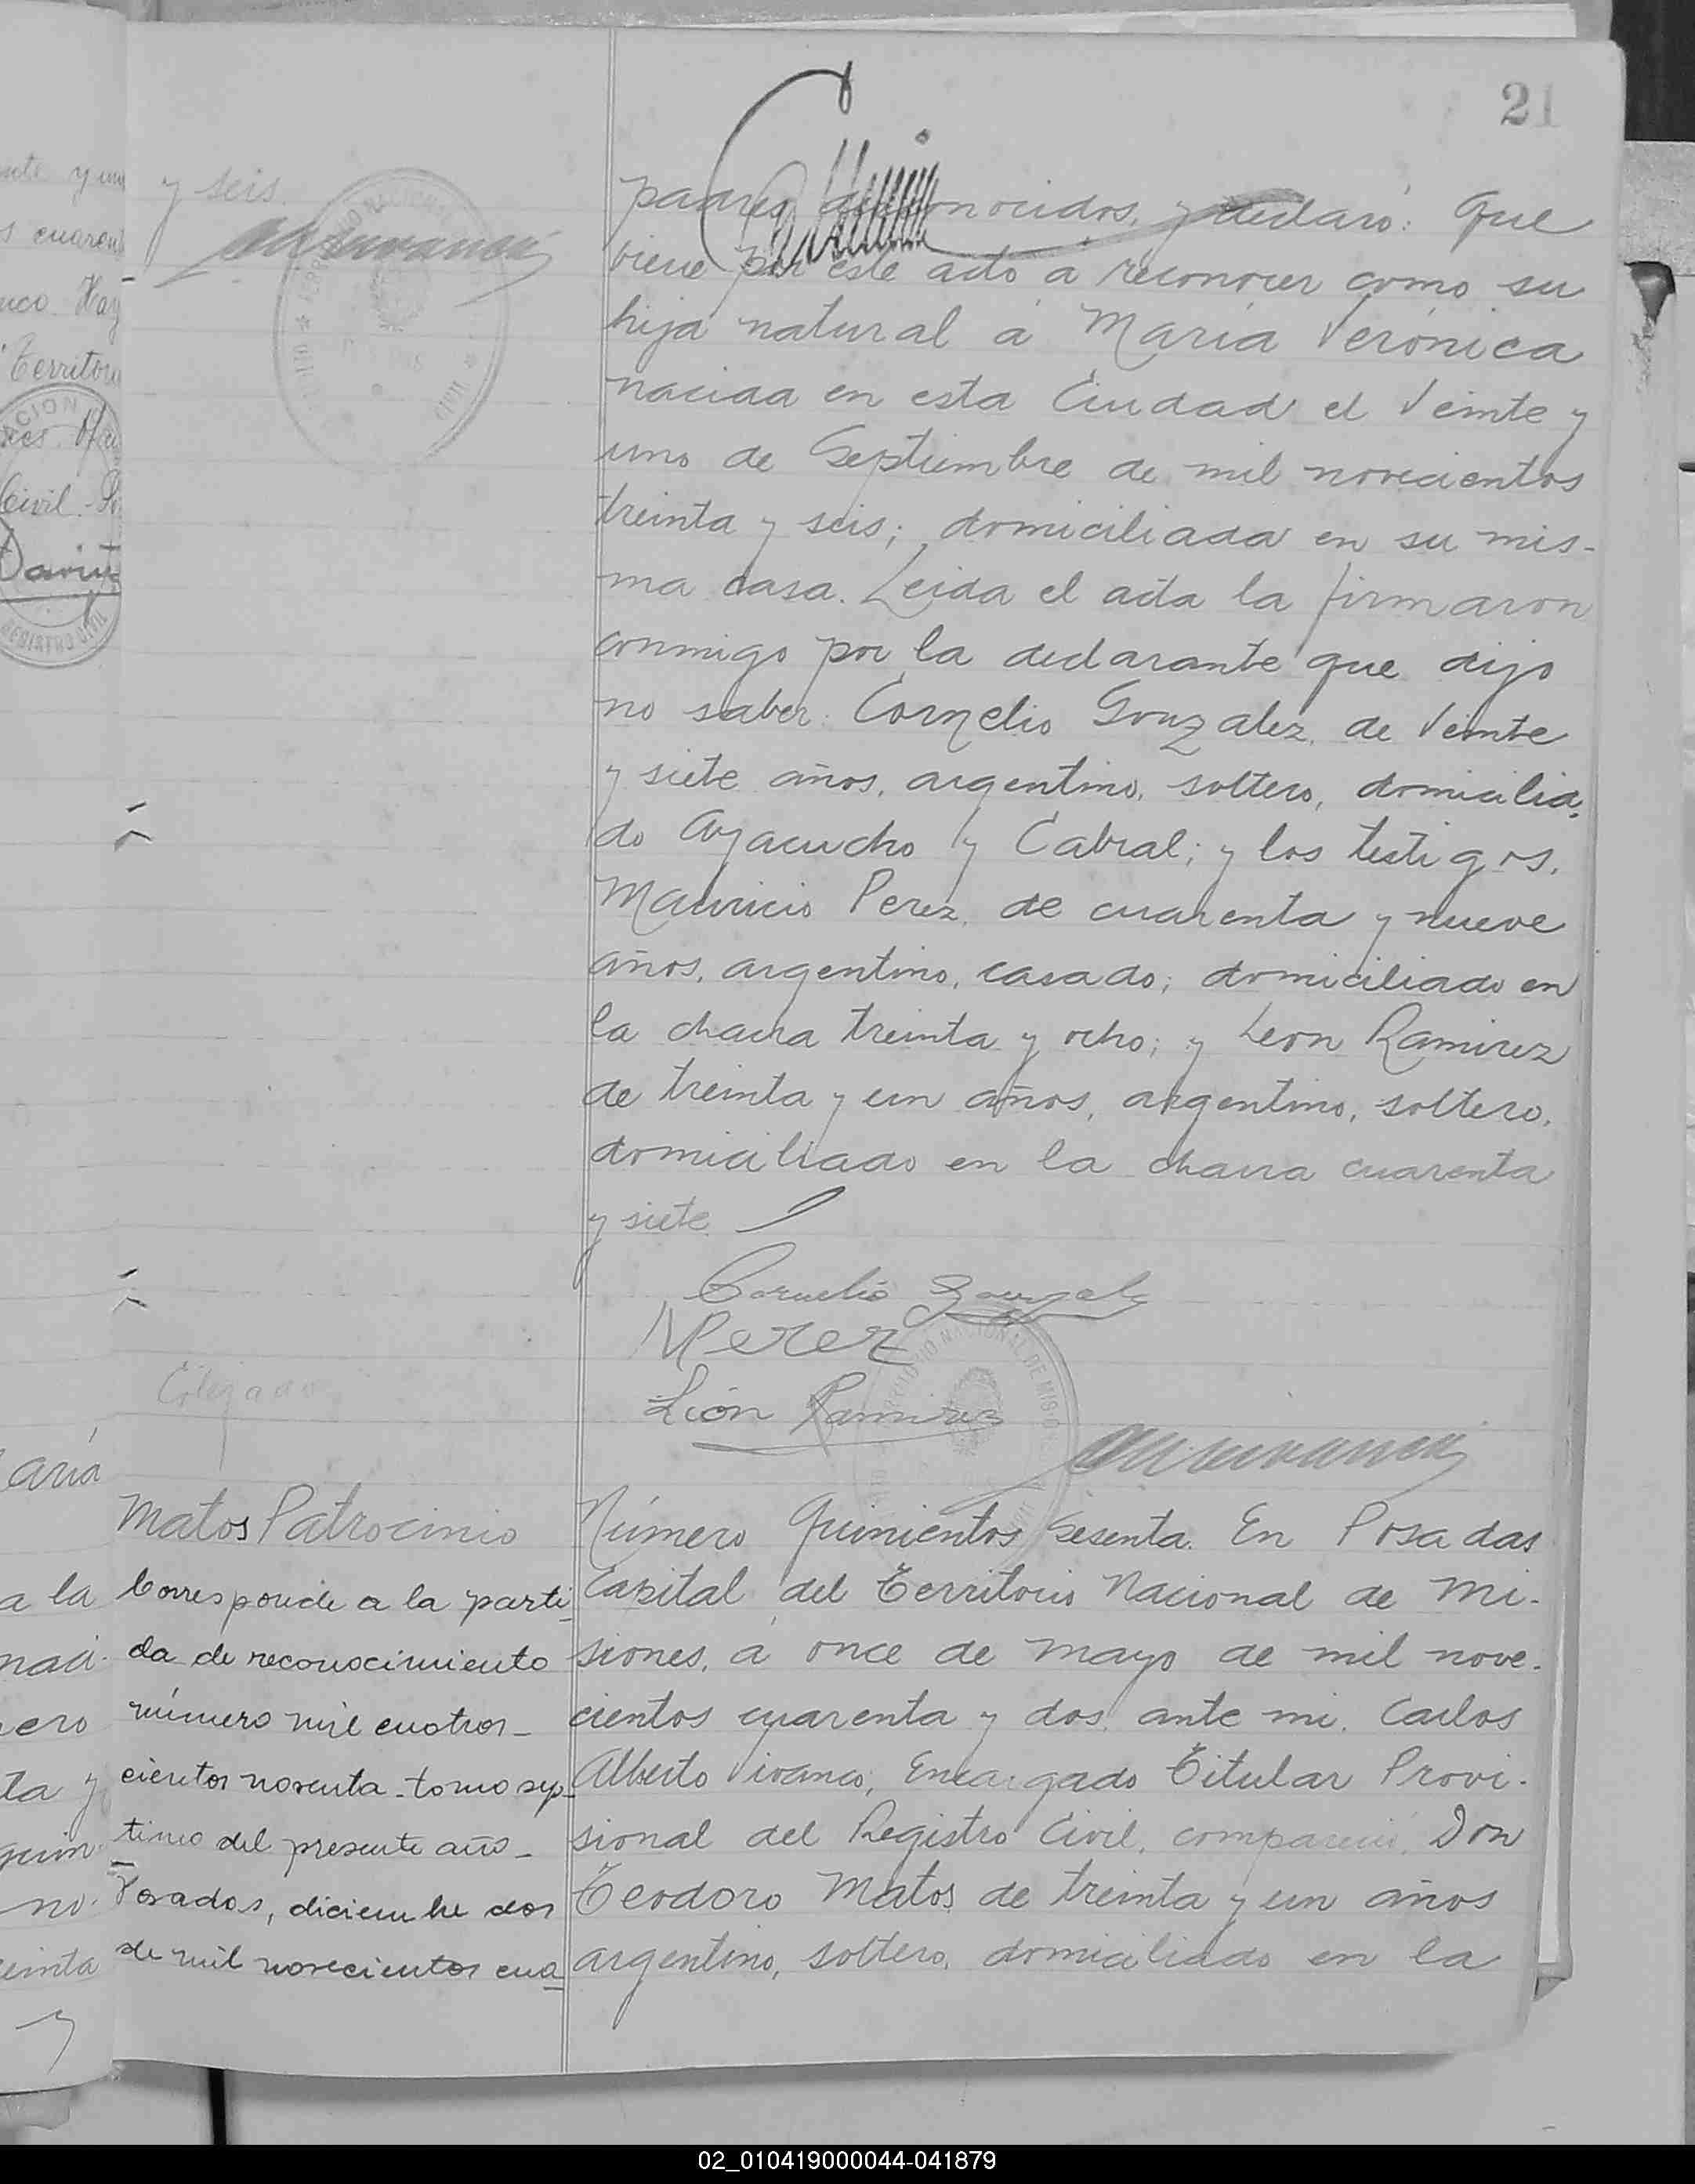 21
y seis.
padres desconocidos, y declaró: Que
viene por este acto a reconocer como su
hija natural á María Verónica
nacida en esta Ciudad el Veinte y
uno de Septiembre de mil novecientos
treinta y seis; domiciliada en su mis-
ma casa. Leida el acta la firmaron
conmigo por la declarante que dijo
no saber: Cornelio Gonzalez, de Veinte
y siete años, argentino, soltero, domicilia-
do Ayacucho y Cabral; y los testigos,
Mauricio Perez, de cuarenta y nueve
años, argentino, casado; domiciliado en
la chacra treinta y ocho; y Leon Ramirez
de treinta y un años, argentino, soltero,
domiciliado en la chacra cuarenta
y siete
Cornelio Gonzalez
MPerez
León Ramirez
Matos Patrocinio
Corresponde a la parti-
da de reconocimiento
número mil cuatros-
cientos noventa - tomo sép-
timo del presente año -
Posadas, diciembre dos
de mil novecientos cua-
Número Quinientos Sesenta. En Posadas
Capital del Territorio Nacional de Mi-
siones, á once de Mayo de mil nove-
cientos cuarenta y dos, ante mi, Carlos
Alberto Vivanco, Encargado Titular Provi-
sional del Registro Civil, compareció, Don
Teodoro Matos de treinta y un años
argentino, soltero, domiciliado en la
02_010419000044-041879